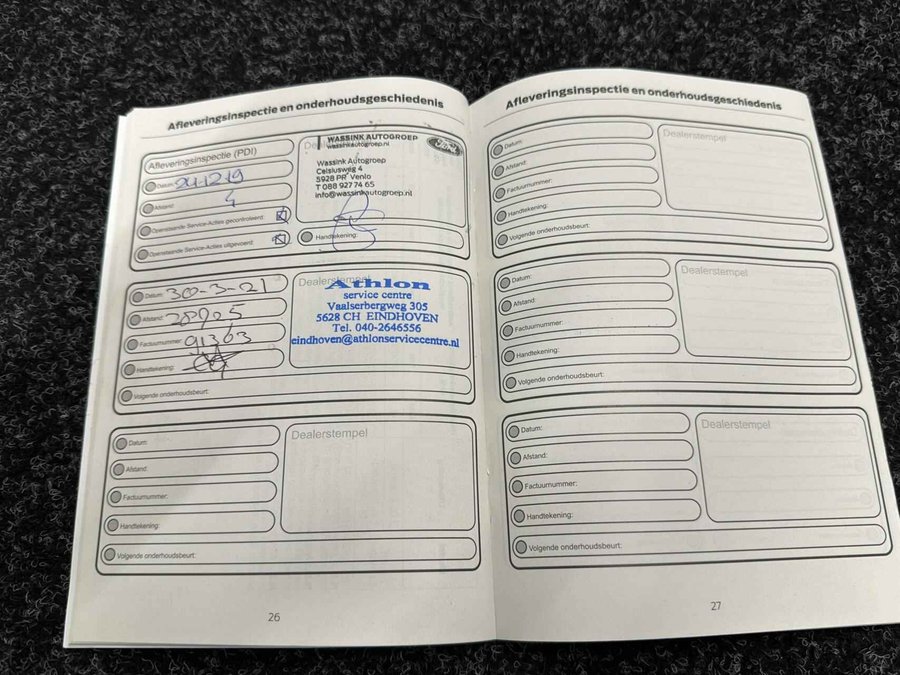 Afleveringsinspectie en onderhoudsgeschiedenis
Afleveringsinspectie (PDI)
Datum: 24-12-19
Afstand: 4
Openstaande Service-Acties gecontroleerd:
Openstaande Service-Acties uitgevoerd:
WASSINK AUTOGROEP
wassinkautogroep.nl
Ford
Wassink Autogroep
Celsiusweg 4
5928 PR Venlo
T 088 927 74 65
info@wassinkautogroep.nl
Handtekening:
Datum: 30-3-21
Afstand: 28925
Factuurnummer: 91363
Handtekening:
Volgende onderhoudsbeurt:
Dealerstempel
Athlon
service centre
Vaalserbergweg 305
5628 CH EINDHOVEN
Tel. 040-2646556
eindhoven@athlonservicecentre.nl
Datum:
Afstand:
Factuurnummer:
Handtekening:
Volgende onderhoudsbeurt:
Dealerstempel
26
Afleveringsinspectie en onderhoudsgeschiedenis
Datum:
Afstand:
Factuurnummer:
Handtekening:
Volgende onderhoudsbeurt:
Dealerstempel
Datum:
Afstand:
Factuurnummer:
Handtekening:
Volgende onderhoudsbeurt:
Dealerstempel
Datum:
Afstand:
Factuurnummer:
Handtekening:
Volgende onderhoudsbeurt:
Dealerstempel
27